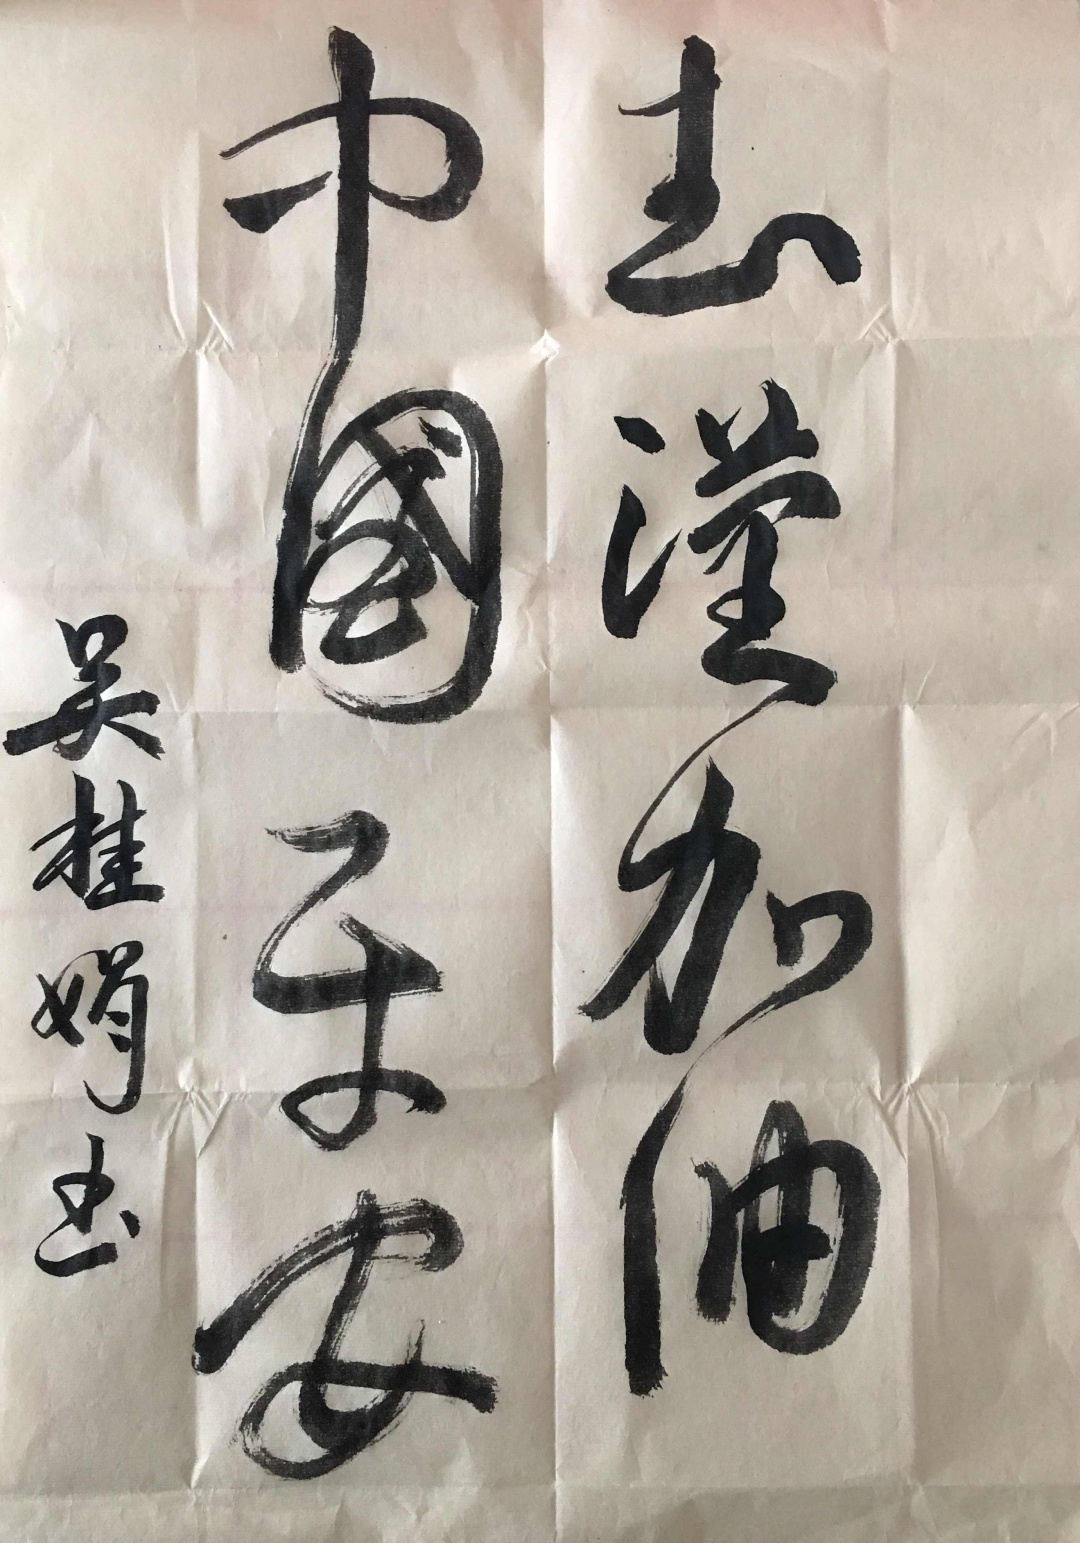 武漢加油
中國平安
吴桂娟书